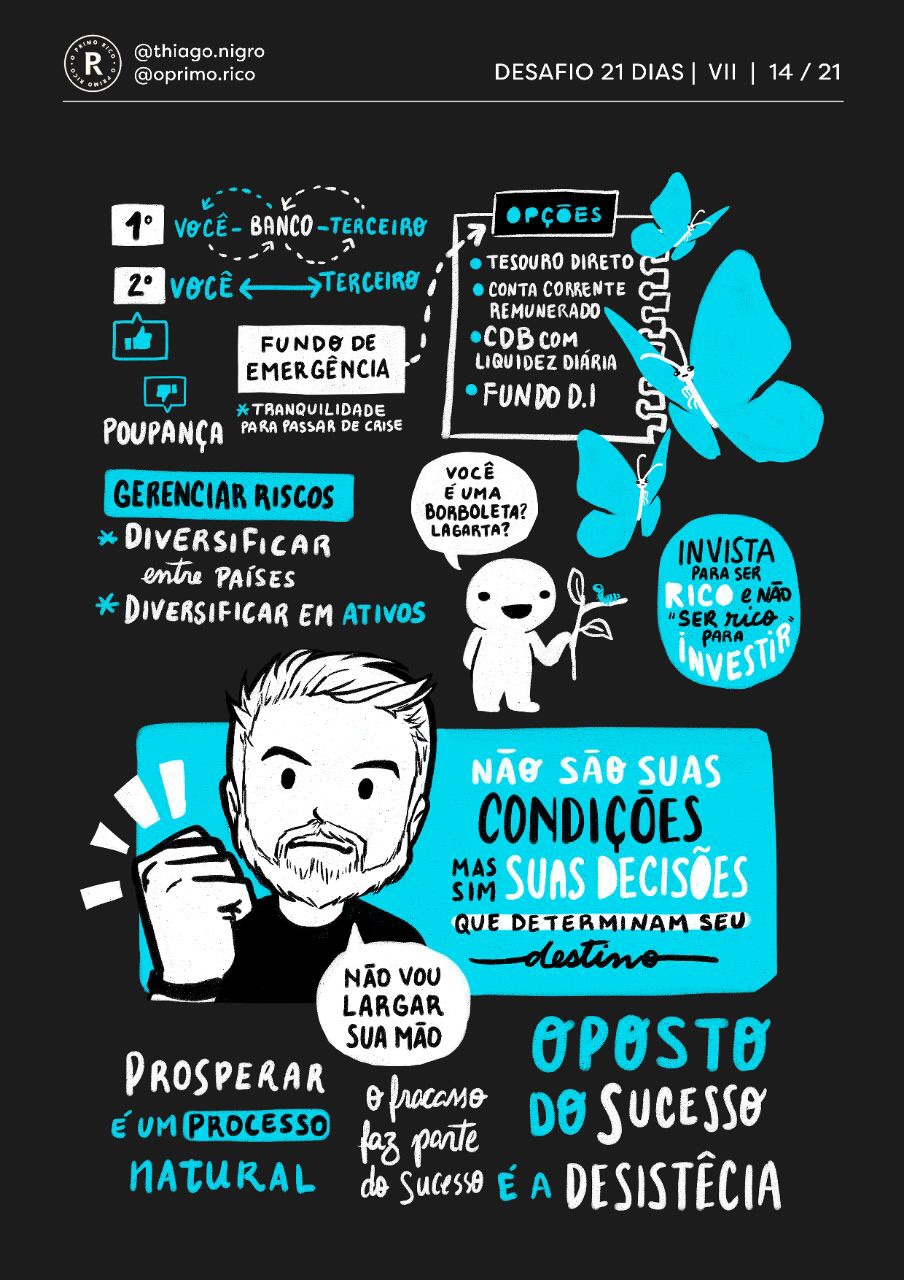 R
O PRIMO RICO • O PRIMO RICO •
@thiago.nigro
@oprimo.rico
DESAFIO 21 DIAS | VII | 14 / 21
1º VOCÊ - BANCO - TERCEIRO
2º VOCÊ TERCEIRO
FUNDO DE
EMERGÊNCIA
* TRANQUILIDADE
PARA PASSAR DE CRISE
POUPANÇA
OPÇÕES
TESOURO DIRETO
CONTA CORRENTE
REMUNERADO
CDB COM
LIQUIDEZ DIÁRIA
FUNDO D.I
GERENCIAR RISCOS
* DIVERSIFICAR
entre PAÍSES
* DIVERSIFICAR EM ATIVOS
VOCÊ
É UMA
BORBOLETA?
LAGARTA?
INVISTA
PARA SER
RICO e NÃO
"SER rico
PARA
iNVESTiR"
NÃO SÃO SUAS
CONDIÇÕES
MAS
SIM SUAS DECISÕES
QUE DETERMINAM SEU
destino
NÃO VOU
LARGAR
SUA MÃO
PROSPERAR
É UM PROCESSO
NATURAL
o fracasso
faz parte
do sucesso
OPOSTO
DO SUCESSO
É A DESISTÊCIA